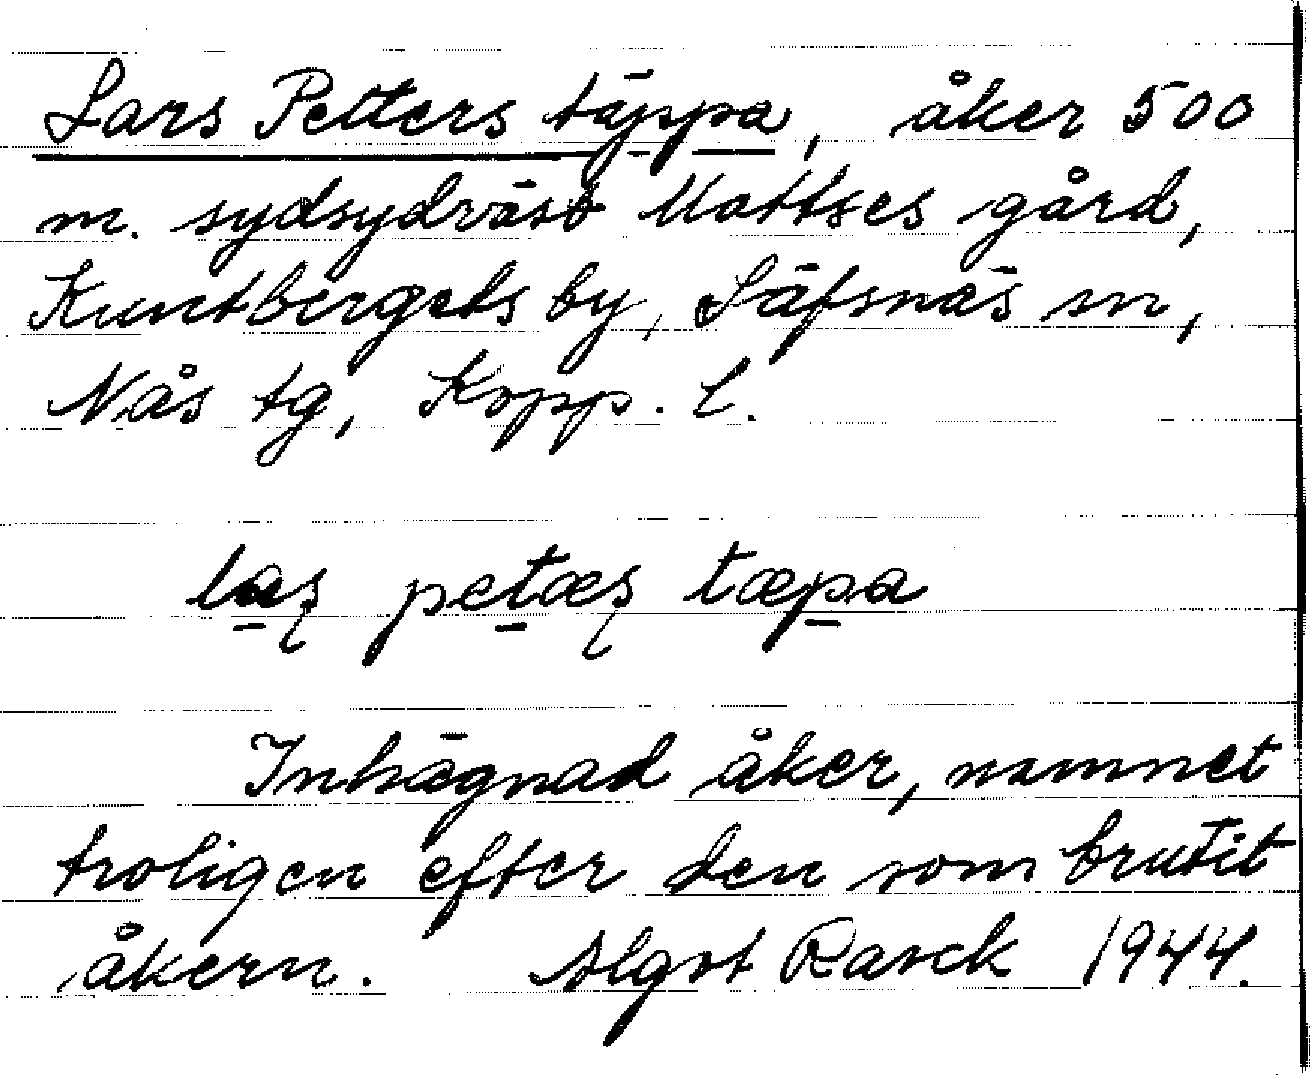 Lars Petters täppa, åker 500
m. sydsydväst Mattses gård,
Kuntbergets by, Säfsnäs sn,
Nås tg, Kopp. l.
laʂ petæʂ tæpa
Inhägnad åker, namnet
troligen efter den som brutit
åkern. Algot Rasck 1944.